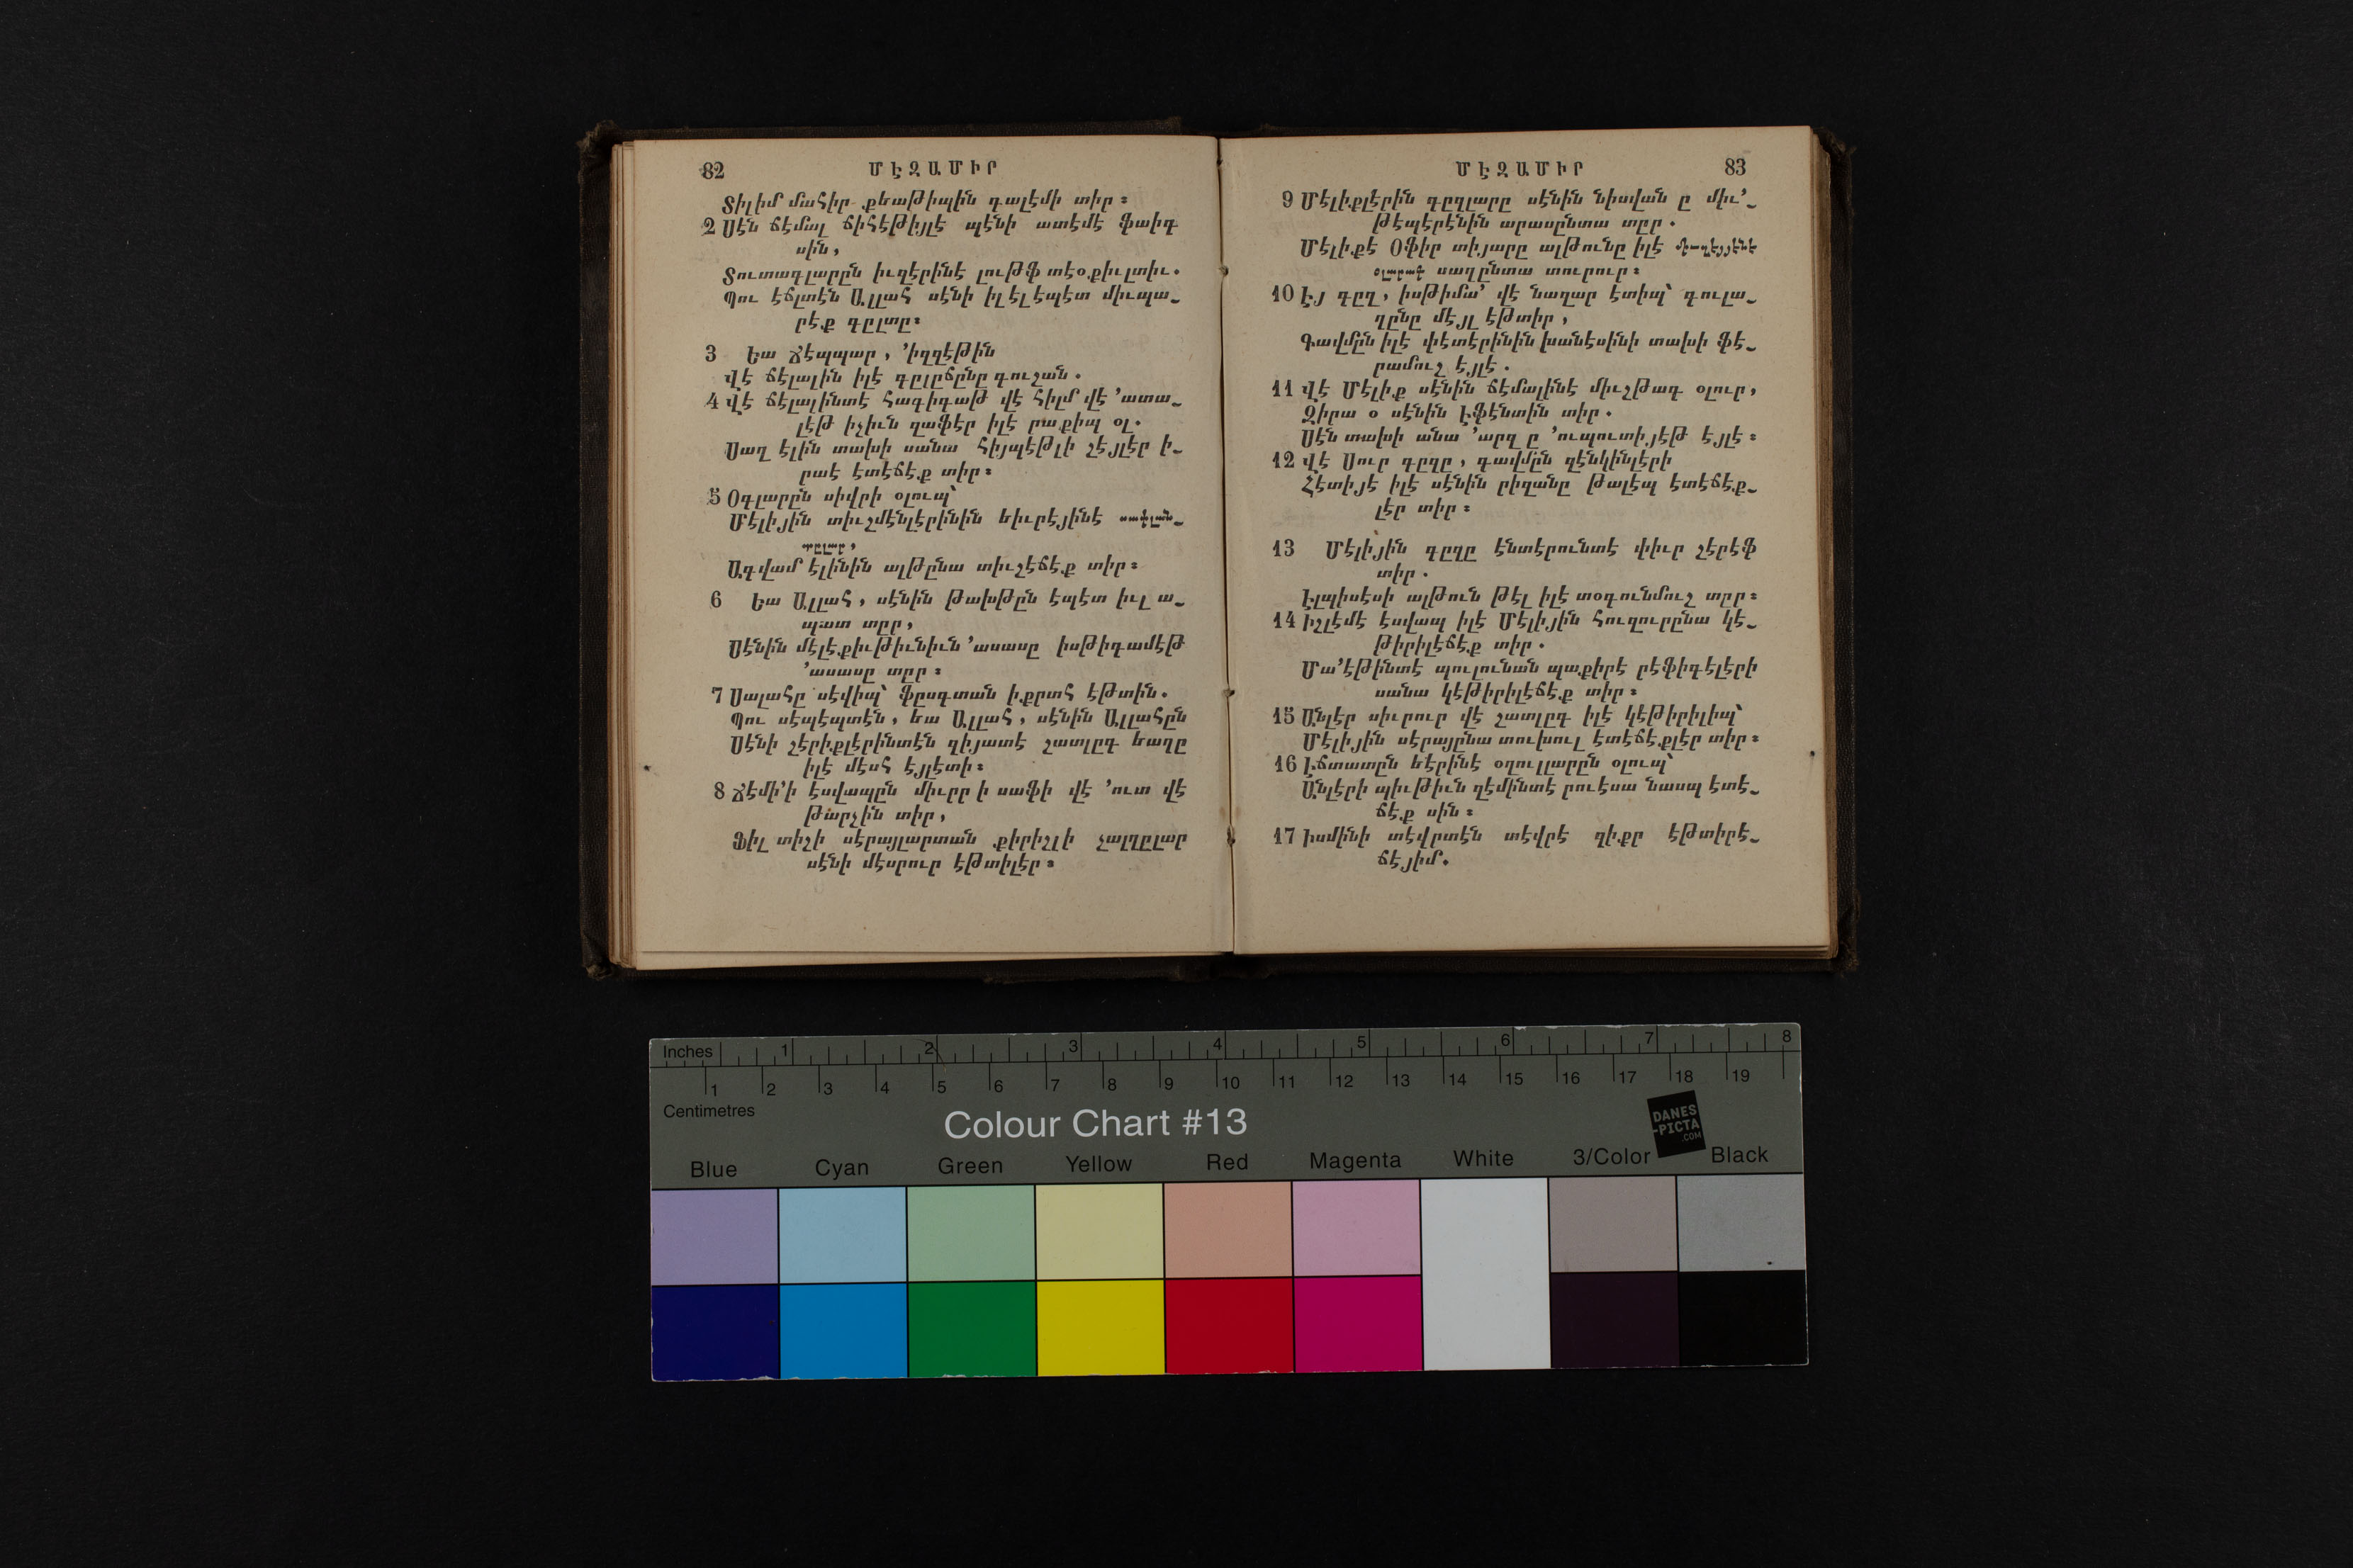 82
ՄԷԶԱՄԻՐ
Տիլիմ մահիր քեաթիպին գալէմի տիր։
2 Սէն ճէմալ ճիհէթիյլէ պէնի ատէմէ ֆաիգ
սին,
Տուտագլարըն իւզէրինէ լութֆ տէօքիւլտիւ.
Պու էճլտէն Ալլահ սէնի իլէլէպէտ միւպա֊
րէք գըլտը։
3 Եա Ճէպպար, ՚իզզէթին
վէ ճէլալին իլէ գըլըճընը գուշան.
4 Վէ ճէլալինտէ հագիգաթ վէ հիլմ վէ ՚ատա֊
լէթ իչիւն զաֆէր իլէ րաքիպ օլ.
Սաղ էլին տախի սանա հիյպէթլի շէյլէր ի֊
րաէ էտէճէք տիր։
5 Օգլարըն սիվրի օլուպ՝
Մէլիյին տիւշմէնլէրինին եիւրէյինէ
Ագվամ էլինին ալթընա տիւշէճէք տիր։
6 Եա Ալլահ, սէնին թախթըն էպէտ իւլ ա֊
պատ տըր,
Սէնին մէլէքիւթիւնիւն ՚ասասը իսթիգամէթ
՚ասասը տըր։
7 Սալահը սէվիպ՝ ֆըսգտան իքրահ էթտին.
Պու սէպէպտէն, եա Ալլահ, սէնին Ալլահըն
Սէնի շէրիքլէրինտէն զիյատէ շատլըգ եաղը
իլէ մէսհ էյլէտի։
8 Ճէմի՚ի էսվապըն միւրր ի սաֆի վէ ՚ուտ վէ
թարչին տիր,
Ֆիլ տիշի սէրայլարտան քիրիշլի չալղըլար
սէնի մէսրուր էթտիլէր։
ՄԷԶԱՄԻՐ
83
9 Մէլիքլէրին գըզլարը սէնին նիսվան ը միւ՚֊
թէպէրէնին արասընտա տըր.
Մէլիքէ Օֆիր տիյարը ալթունը իլէ
օլարագ սաղընտա տուրուր։
10 Էյ գըզ, իսթիմա՚ վէ նազար էտիպ՝ գուլա֊
ղընը մէյլ էթտիր,
Գավմըն իլէ փէտէրինին խանէսինի տախի ֆէ֊
րամուշ էյլէ.
11 Վէ Մէլիք սէնին ճէմալինէ միւշթագ օլուր,
Զիրա օ սէնին Էֆէնտին տիր.
Սէն տախի անա ՚արզ ը ՚ուպուտիյէթ էյլէ։
12 Վէ Սուր գըզը, գավմըն զէնկինլէրի
Հէտիյէ իլէ սէնին րիզանը թալէպ էտէճէք֊
լէր տիր։
13 Մէլիյին գըզը էնտէրունտէ փիւր շէրէֆ
տիր.
Էլպիսէսի ալթուն թէլ իլէ տօգունմուշ տըր։
14 Իշլէմէ էսվապ իլէ Մէլիյին հուզուրընա կէ֊
թիրիլէճէք տիր.
Մա՚էթինտէ պուլունան պաքիրէ րէֆիգէլէրի
սանա կէթիրիլէճէք տիր։
15 Անլէր սիւրուր վէ շատլըգ իլէ կէթիրիլիպ՝
Մէլիյին սէրայընա տուխուլ էտէճէքլէր տիր։
16 Էճտատըն եէրինէ օղուլլարըն օլուպ՝
Անլէրի պիւթիւն զէմինտէ րուէսա նասպ էտէ֊
ճէք սին։
17 Իսմինի տէվրտէն տէվրէ զիքր էթտիրէ֊
ճէյիմ.
Inches 1 2 3 4 5 6 7 8
1 2 3 4 5 6 7 8 9 10 11 12 13 14 15 16 17 18 19
Centimetres
Colour Chart #13
DANES
-PICTA
.COM
Blue Cyan Green Yellow Red Magenta White 3/Color Black